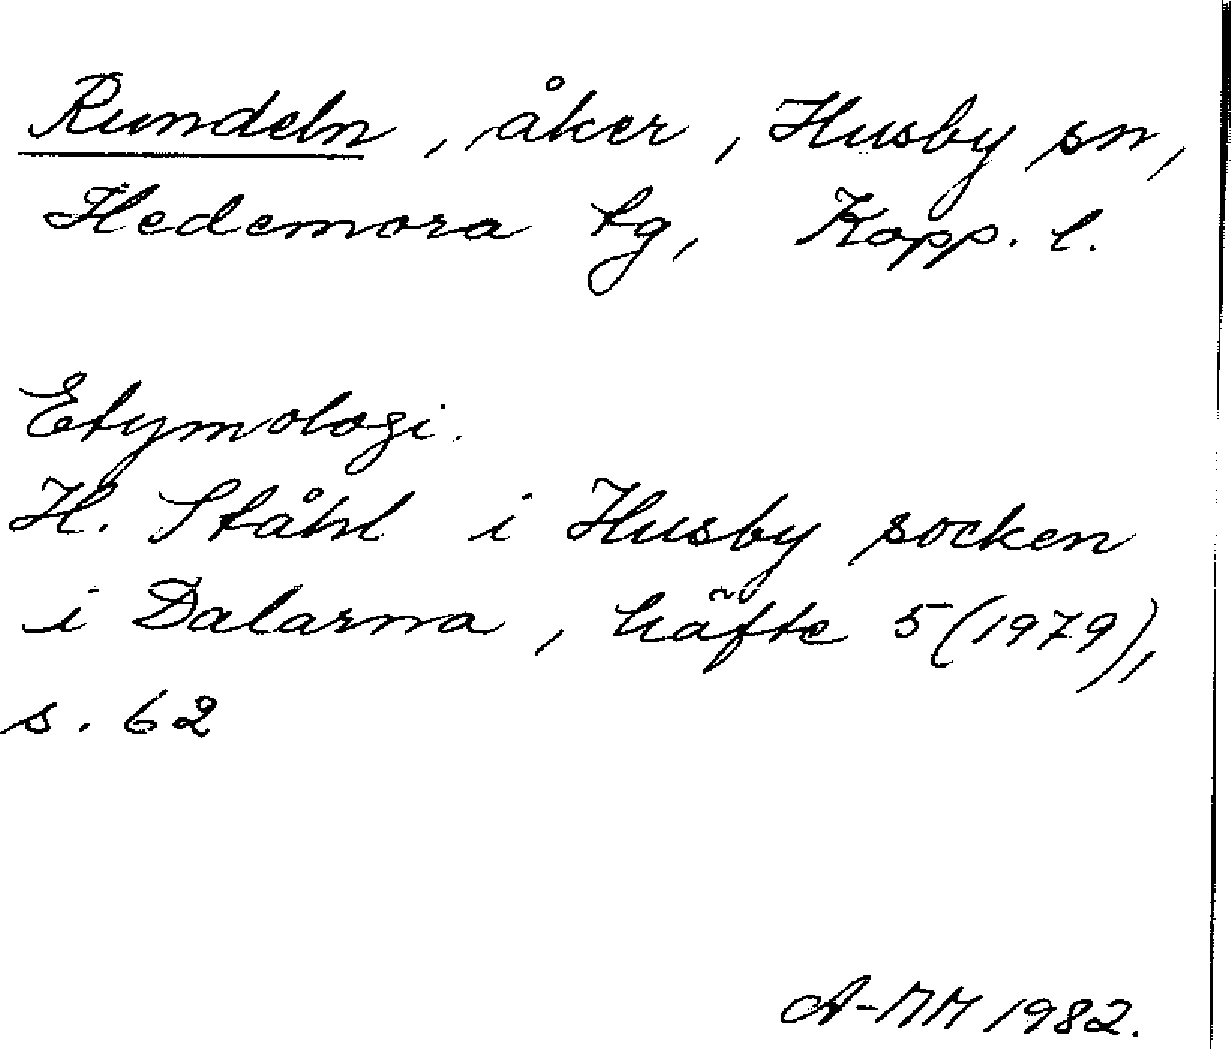 Rundeln, åker, Husby sn,
Hedemora tg, Kopp. l.
Etymologi.
H. Ståhl i Husby socken
i Dalarna, häfte 5 (1979),
s. 62
A-MM 1982.